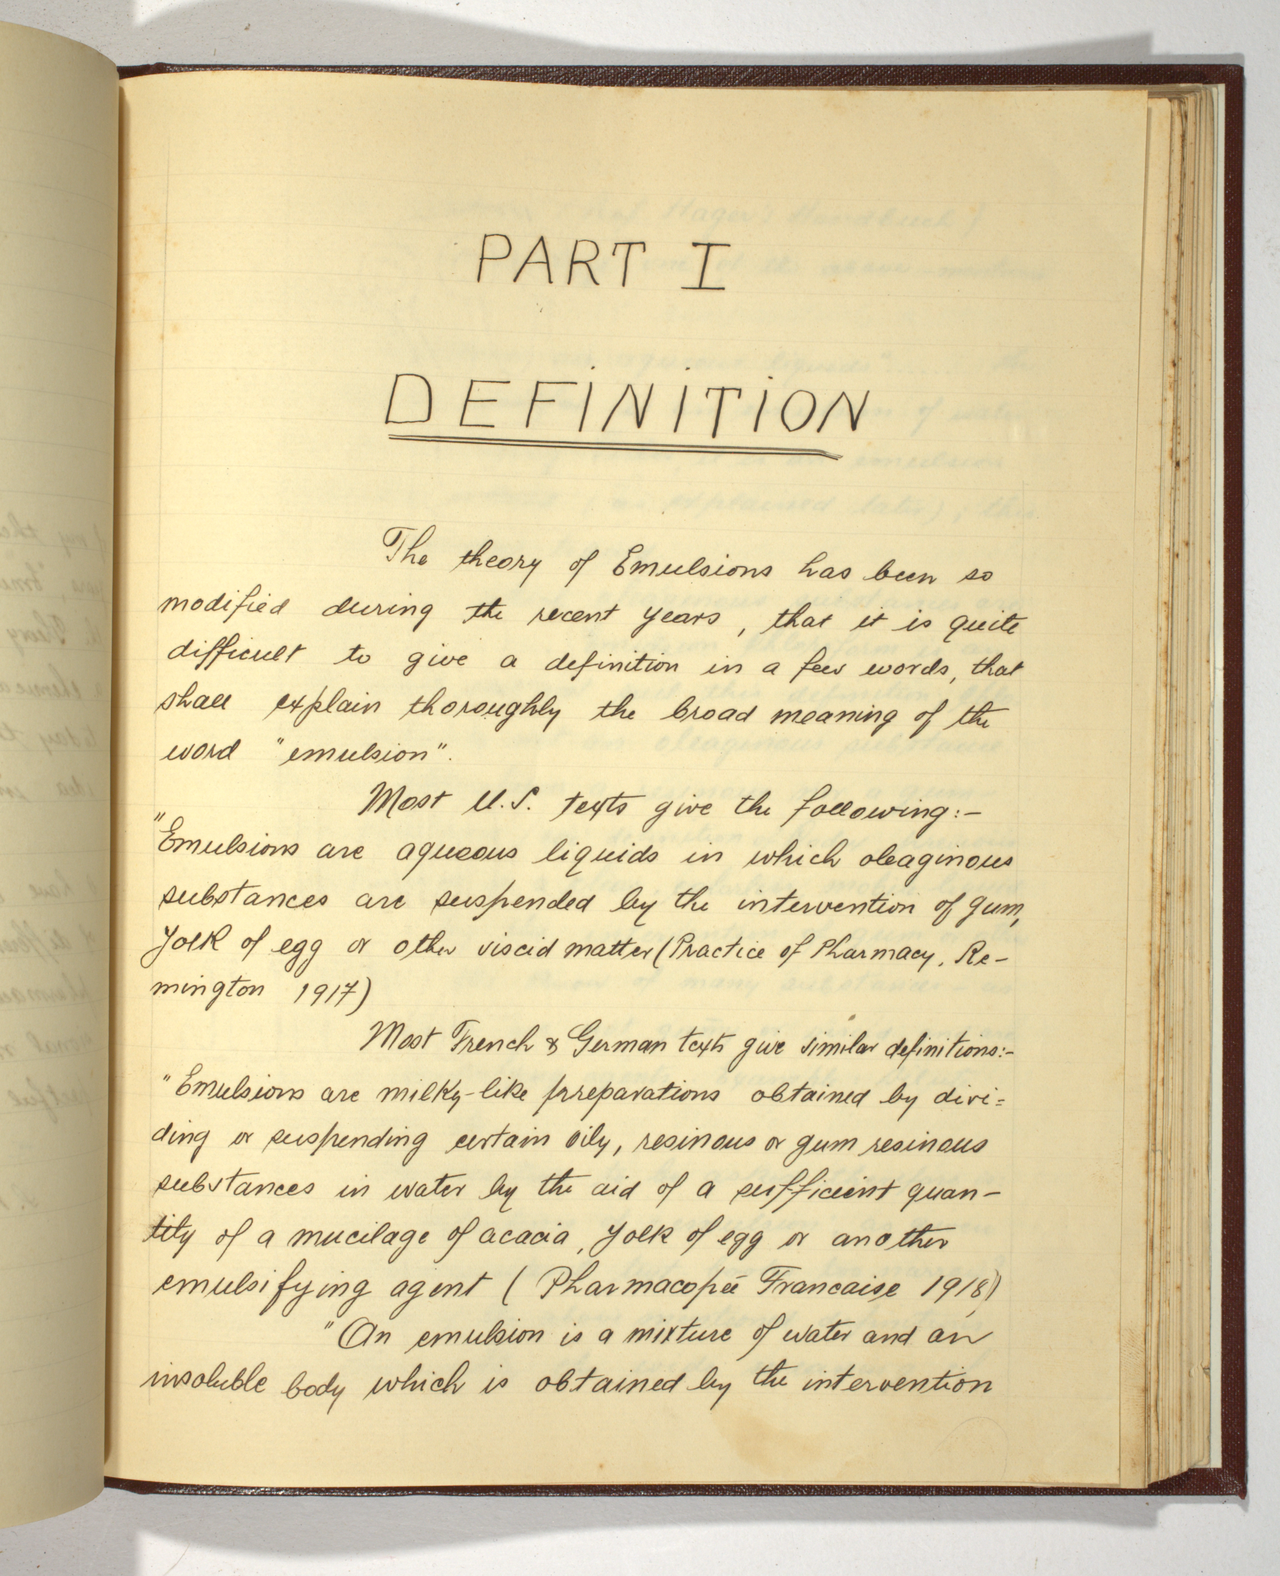 PART I
DEFINITION
The theory of Emulsions has been so
modified during the recent years, that it is quite
difficult to give a definition in a few words, that
shall explain thoroughly the broad meaning of the
word "emulsion".
Most U.S. texts give the following:-
"Emulsions are aqueous liquids in which oleaginous
substances are suspended by the intervention of gum,
yolk of egg or other viscid matter (Practice of Pharmacy, Re-
mington 1917)
Most French & German texts give similar definitions:-
"Emulsions are milky-like prreparations obtained by divi=
ding or suspending certain oily, resinous or gum resinous
substances in water by the aid of a sufficient quan-
tity of a mucilage of acacia, yolk of egg or another
emulsifying agent (Pharmacopée Francaise 1918)
"An emulsion is a mixture of water and an
insoluble body which is obtained by the intervention